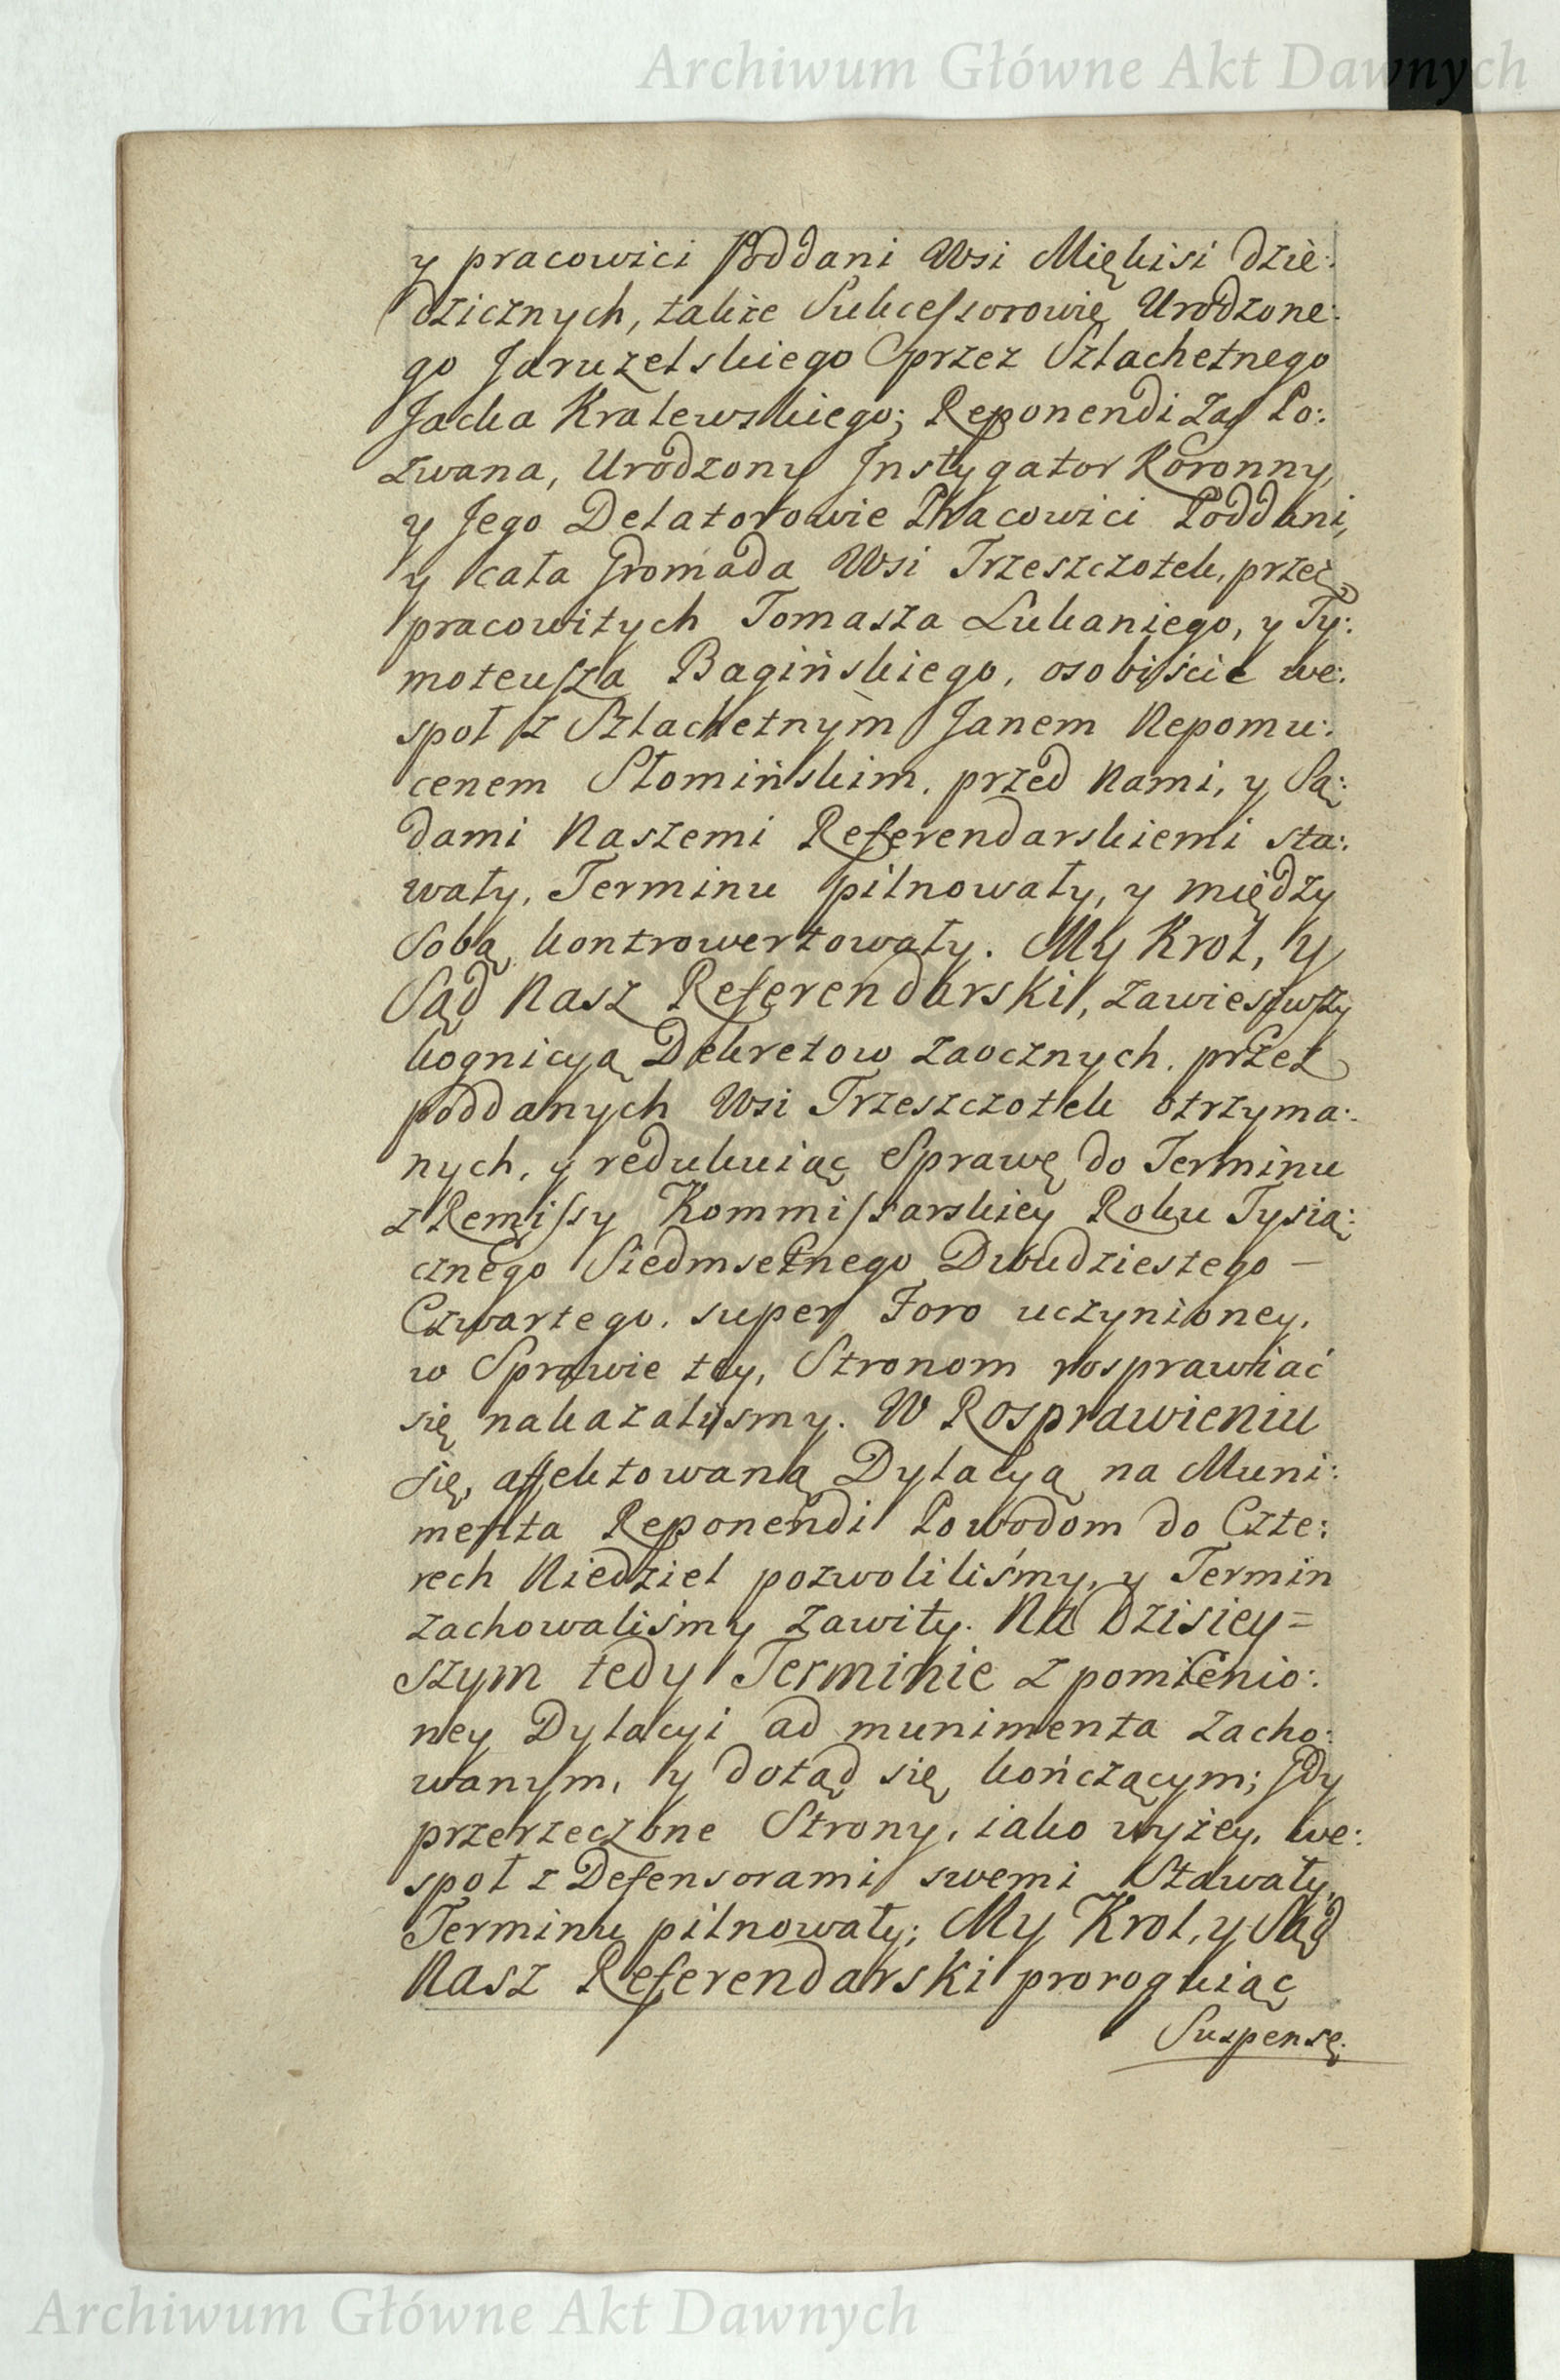 Archiwum Główne Akt Dawnych
y pracowici Poddani Wsi Miękisi dzie:
dzicznych, także Sukcessorowie Urodzone:
go Jaruzelskiego przez Szlachetnego
Jacka Kralewskiego; Reponendi zaś Po:
zwana, Urodzony Instygator Koronny,
y Jego Delatorowie Pracowici Poddani,
y cała Gromada Wsi Trzeszczotek, przez
pracowitych Tomasza Lukaniego, y Ty:
moteusza Bagińskiego, osobiście we:
społ z Szlachetnym Janem Nepomu:
cenem Słomińskim, przed Nami, y Są:
dami Naszemi Referendarskiemi sta:
wały, Terminu pilnowały, y między
Sobą kontrowertowały. My Krol, y
Sąd Nasz Referendarski, zawiesiwszy
kognicyą Dekretow zaocznych, przez
poddanych Wsi Trzeszczotek otrzyma:
nych, y redukuiąc Sprawę do Terminu
z Remissy Kommissarskiey Roku Tysią:
cznego Siedmsetnego Dwudziestego —
Czwartego, super Foro uczynioney,
w Sprawie tey, Stronom rosprawiać
się nakazaliśmy. W Rosprawieniu
się, affektowaną Dylacyą na Muni:
menta Reponendi Powodom do Czte:
rech Niedziel pozwoliliśmy, y Termin
zachowaliśmy zawity. Na Dzisiey=
szym tedy Terminie z pomienio:
ney Dylacyi ad munimenta zacho:
wanym, y dotąd się kończącym; gdy
przerzeczone Strony, iako wyżey, we:
społ z Defensorami swemi Stawały,
Terminu pilnowały; My Krol, y Sąd
Nasz Referendarski proroguiąc
Suspensę.
Archiwum Główne Akt Dawnych